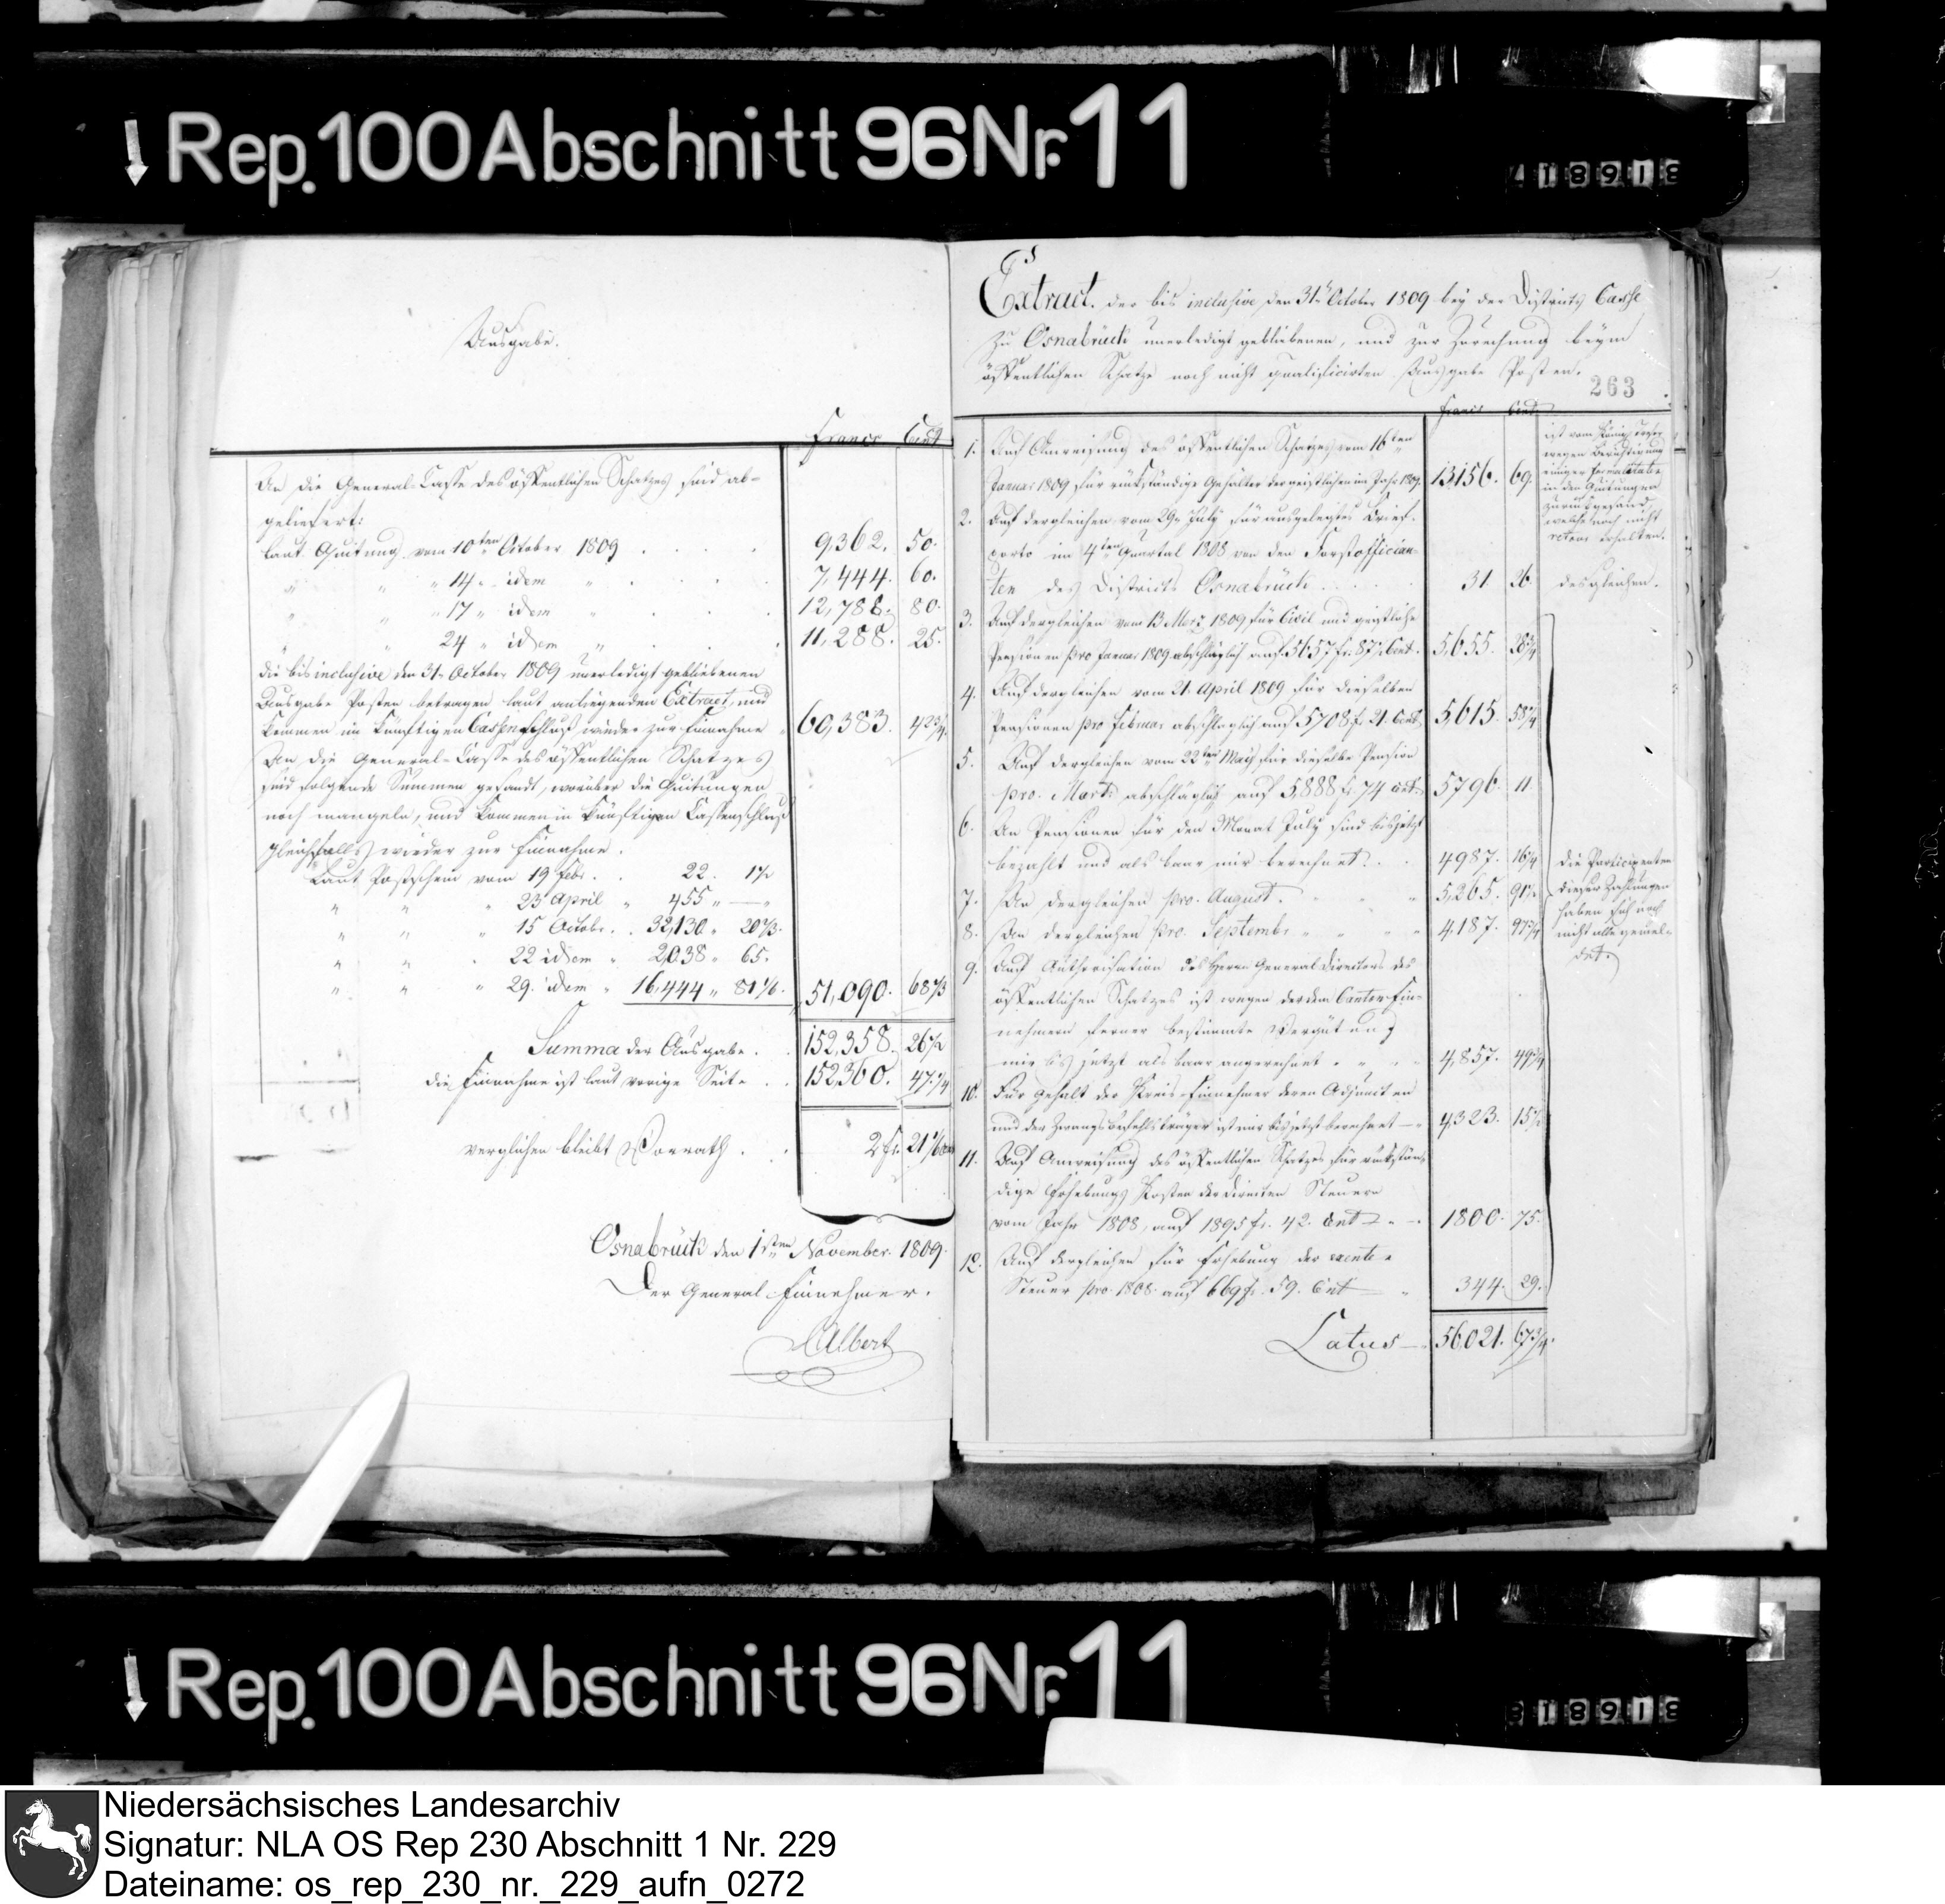 Rep. 100 Abschnitt 96 Nr. 11
418918
Ausgabe.
Francs Cent
An die General-Casse des öffentlichen Schatzes sind ab-
geliefert:
laut Quitung vom 10ten October 1809 9,362. 50.
" " " 14 " idem " 7,444. 60.
" " " 17 " idem " 12,788. 80.
" " 24 " idem " 11,288. 25.
die bis inclusive den 31. October 1809 unerledigt gebliebenen
Ausgabe Posten betragen laut anliegenden Extract, und
kommen im künftigen Cassenschluß wieder zur Einnahme 60,383. 42 3/4.
An die General-Casse des öffentlichen Schatzes
sind folgende Summen gesandt, worüber die Quitungen
noch mangeln, und kommen in künftigen Cassenschluß
gleichfalls wieder zur Einnahme.
Laut Postschein vom 19 Febr. 22. 1 1/2
" " " 23 April " 455 " — "
" " " 15 Octobr. 32,130 " 20 2/3.
" " " 22 idem " 2,038 " 65.
" " " 29. idem " 16,444 " 81 1/6. 51,090. 68 1/3
Summa der Ausgabe. 152,358. 26 1/12
die Einnahme ist laut vorige Seite 152,360. 47 1/4
verglichen bleibt Vorrath. 2 fr. 21 1/6 Cent
Osnabrück den 1sten November. 1809.
Der General-Einnehmer.
Albert
Extract. der bis inclusive den 31t October 1809 bey der Districts Casse
zu Osnabrück unerledigt gebliebenen, und zur Zurechnung beym
öffentlichen Schatze noch nicht qualificirten Ausgabe Posten.
263
Francs Cent.
1. Auf Anweisung des öffentlichen Schatzes vom 16ten
Januar 1809 für rückständige Gehälter der geistlichen im Jahr 1807. 13,156. 69.
ist vom König. Tresor
wegen Berichtigung
einiger Formalitäten
in den Quitungen
zurückgesand,
welche noch nicht
retour erhalten.
2. Auf dergleichen vom 29. July für ausgelegtes Brief-
porto im 4ten Quartal 1808 von den Forstoffician-
ten des Districts Osnabrück 31. 26. desgleichen.
3. Auf dergleichen vom 13 Merz 1809 für Civil und geistliche
Pensionen pro Januar 1809 abschläglich auf 5657 fr. 87 1/2 Cent. 5,655. 38 3/4
4. Auf dergleichen vom 21. April 1809 für dieselben
Pensionen pro Februar abschläglich auf 5708 fr. 21. Cent 5,615. 58 1/4
5. Auf dergleichen vom 22ten May für dieselbe Pension
pro. Martz abschläglich auf 5,888 fr. 74 Cent. 5796. 11.
6. An Pensionen für den Monat July sind bis jetzt
bezahlt und als baar mir berechnet. 4987. 16 1/4
7. An dergleichen pro. August. 5,265. 91 1/2
8. An dergleichen pro. Septembr " 4,187. 97 3/4
die Participenten
dieser Zahlungen
haben sich noch
nicht alle gemel-
det.
9. Auf Authorisation des Herrn General Directors des
öffentlichen Schatzes ist wegen der dem Canton Ein-
nehmern ferner bestimmte Vergütung
mir bis jetzt als baar angerechnet 4,857. 49 3/4
10. Für Gehalt der Kreis-Einnehmer deren Adjuncten
und der Zwangsbefehlsträger ist mir bis jetzt berechnet — 4,323. 15 1/2
11. Auf Anweisung des öffentlichen Schatzes für rückstän-
dige Erhebungs Kosten der directen Steuern
vom Jahr 1808, auf 1895 fr. 42. Cent 1800. 75.
12. Auf dergleichen für Erhebung der exente
Steuer pro. 1808. auf 669 fr. 59. Cent " 344. 29.
Latus — 56,021. 67 3/4.
Rep. 100 Abschnitt 96 Nr. 11
318918
Niedersächsisches Landesarchiv
Signatur: NLA OS Rep 230 Abschnitt 1 Nr. 229
Dateiname: os_rep_230_nr._229_aufn_0272